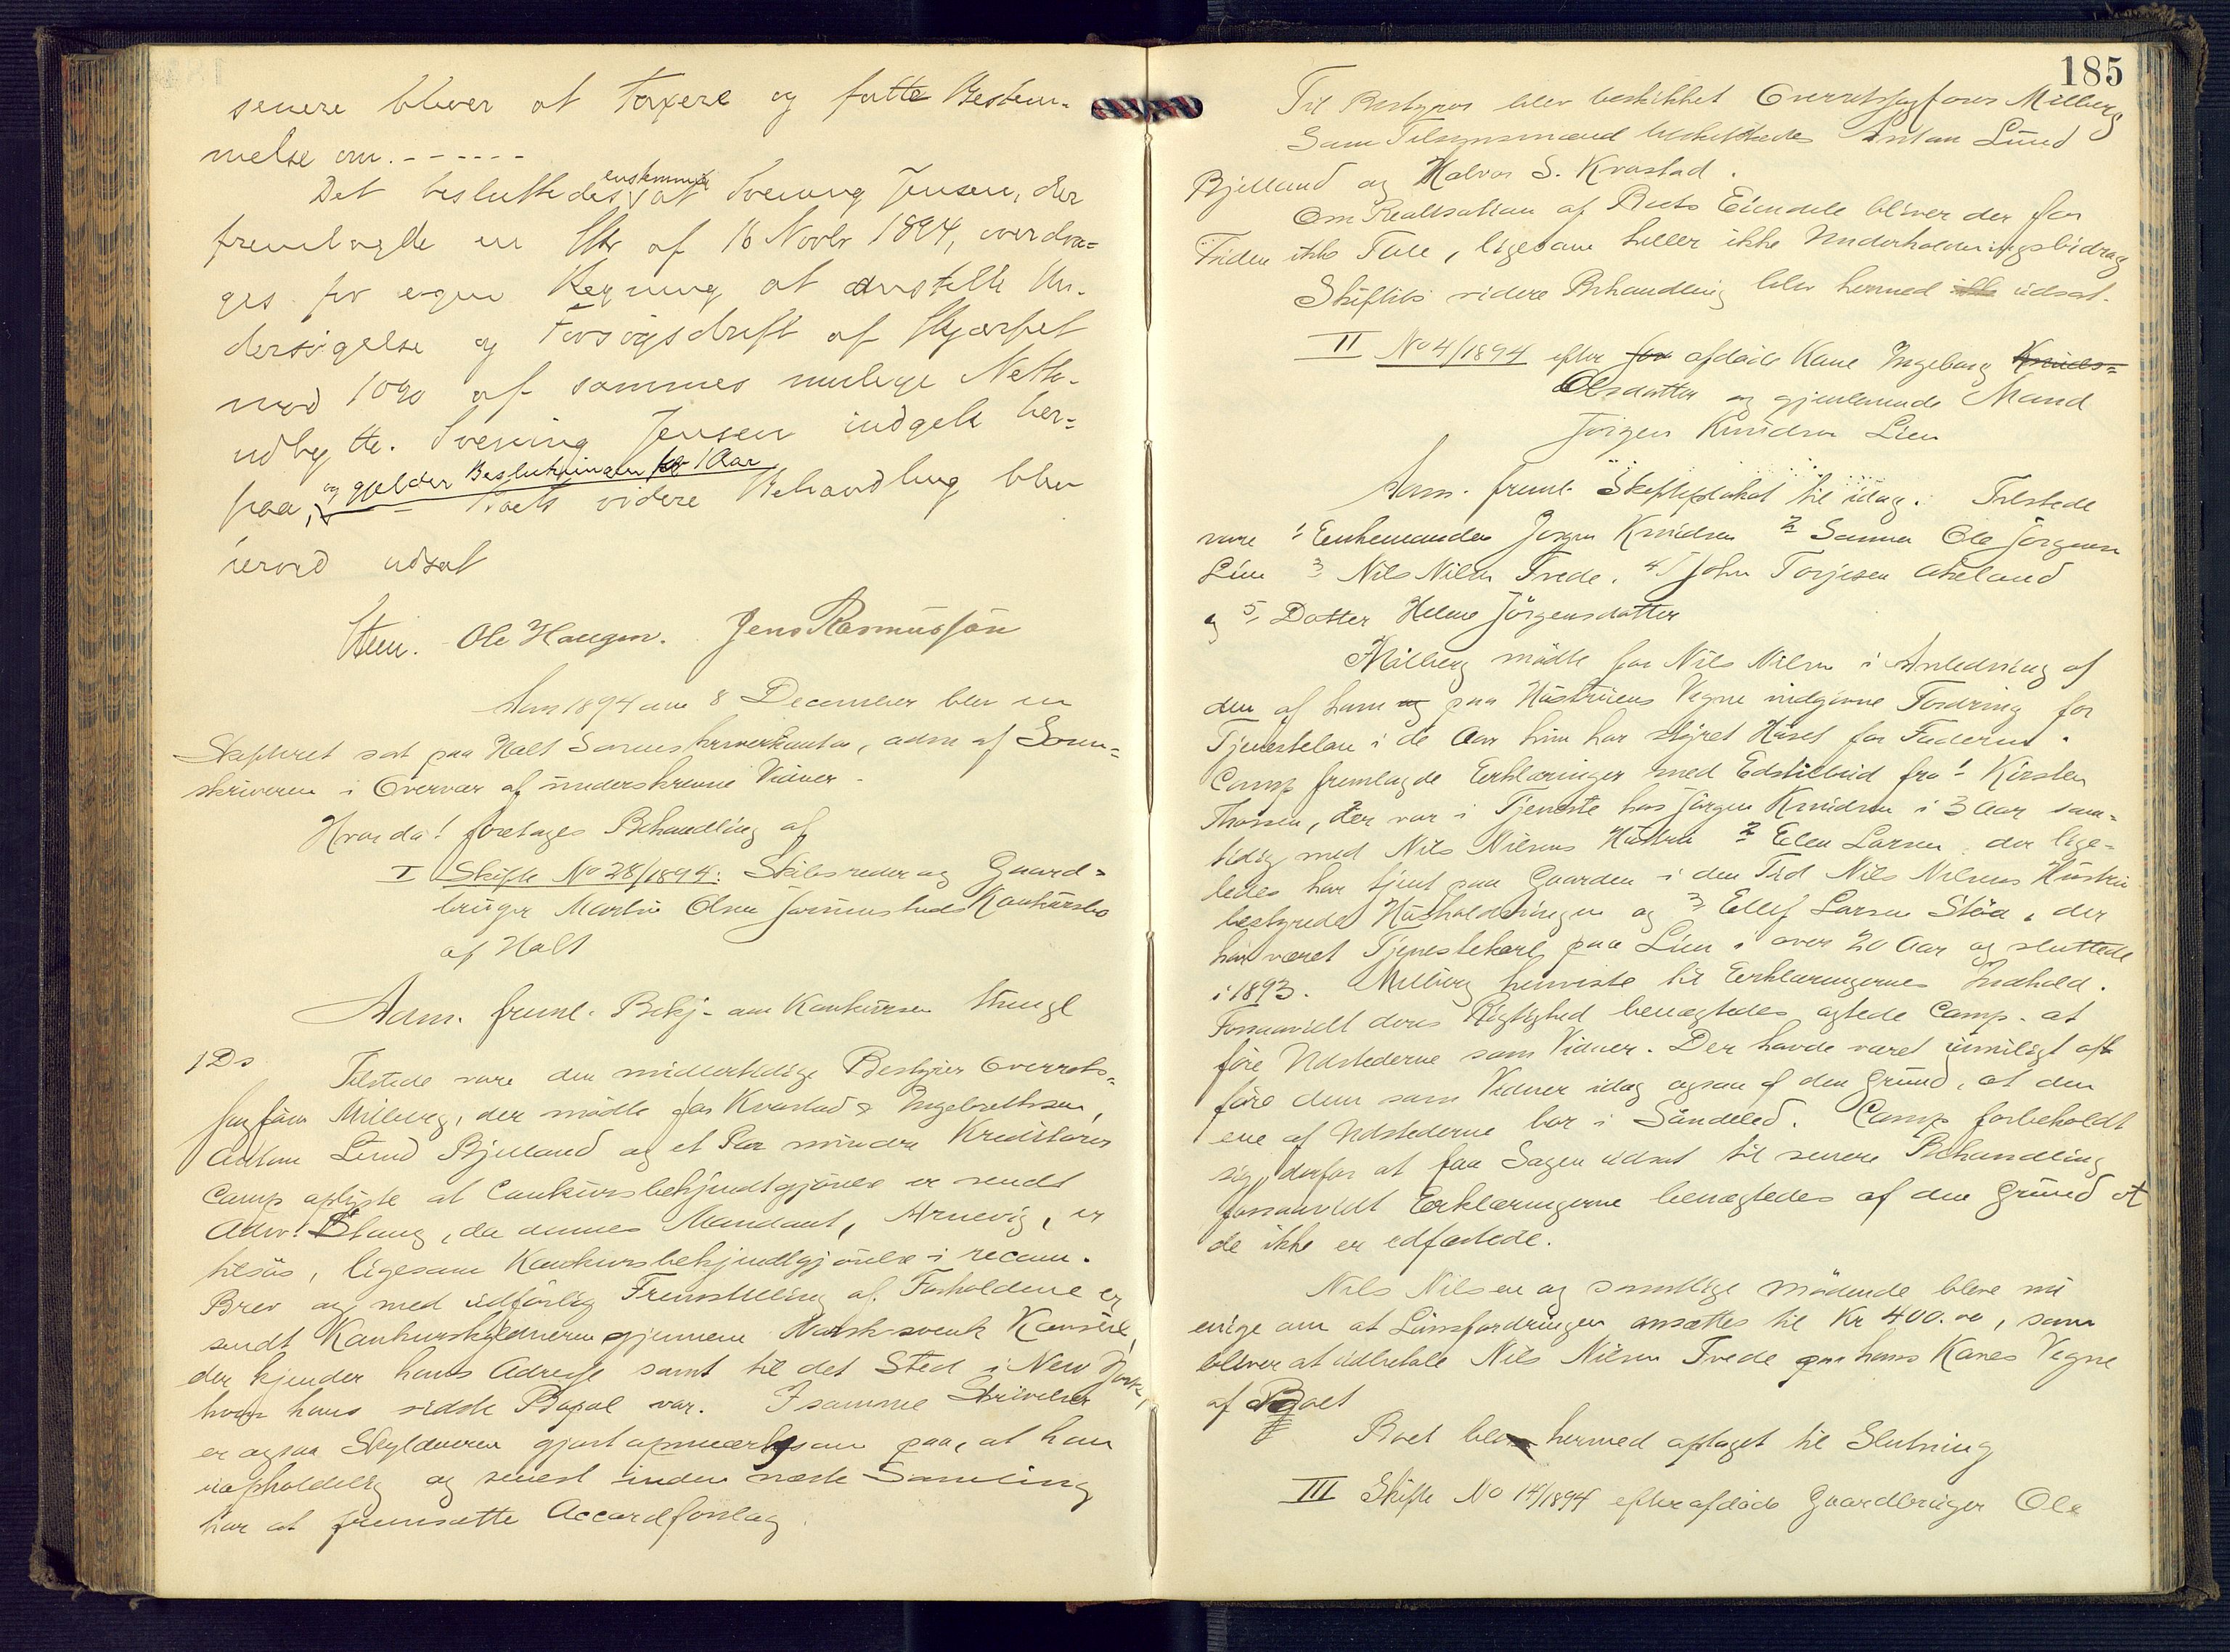 senere bliver at taxere og fatte Bestem-
melse om. - - - - - -
Det besluttedes enstemmig at Svenung Jensen, der
fremlagde en Skr af 16 Novbr 1894, overdra=
ges for egen Regning at anstille Un-
dersøgelse og Forsøgsdrift af Skjærpet
mod 10% af sammes mulige Netto-
udbytte. Svenung Jensen indgik her=
paa, og gjelder Beslutningen for 1 Aar
- Boets videre Behandling blev
derved udsat
Stein. Ole Haugen. Jens Rasmussøn
Aar 1894 den 8 December blev en
Skifteret sat paa Holt Sorenskriverkontor, adm af Soren=
skriveren i Overvær af underskrevne Vidner -
Hvorda! foretages Behandling af
I Skifte No 28/1894: Skibsreder og Gaard=
bruger Martin Olsen Jorunstads Konkursbo
af Holt
Adm. freml. Bekj. om Konkursen
1 Ds Tilstede vare den midlertidige Bestyrer Overrets=
sagfører Milberg, der mødte for Kvastad & Ingebrethsen,
Anton Lund Bjelland og et Par mindre Kreditorer
Comp oplyste at Conkursbekjendtgjørelse er sendt
Adv! Stang, da dennes Mandant, Arnevig, er
tilsøs, ligesom Konkursbekjendtgjørelse i recom.
Brev og med udførlig Fremstilling af Forholdene er
sendt Konkursskyldneren gjennem Norsk-svensk Konsul,
der kjender hans Adresse samt til det Sted i New York,
hvor hans sidste Bopæl var. I samme Skrivelser
er ogsaa Skyldneren gjort opmærksom paa, at han
uopholdelig og senest inden næste Samling
har at fremsætte Accordforslag.
185
Til Bestyrer blev beskikket Overretssagfører Milberg
Som Tilsynsmænd beskikkedes Anton Lund
Bjelland og Halvor S. Kvastad.
Om Realisation af Boets Eiendele bliver der for
Tiden ikke Tale, ligesom heller ikke Underholdningsbidrag
Skiftets videre Behandling blev hermed udsat.
II No 4/1894 efter for afdøde Kone Ingeborg Knuds=
Olsdatter og gjenlevende Mand
Jørgen Knudsen Lien
Adm. freml. Skifteplakat til idag. Tilstede
vare 1 Enkemanden Jørgen Knudsen 2 Sønnen Ole Jørgensen
Lien 3 Nils Nilsen Tvede. 4) John Torjesen Akeland
og 5, Datter Helene Jørgensdatter
Milberg mødte for Nils Nilsen i Anledning af
den af ham og paa Hustruens Vegne indgivne Fordring for
Tjenesteløn i de Aar hun har styret Huset for Faderen.
Comp fremlagde Erklæringer med Edstilbud fra 1 Kirsten
Thorsen, der var i Tjeneste hos Jørgen Knudsen i 3 Aar sam=
tidig med Nils Nilsens Hustru 2 Elen Larsen, der lige=
ledes har tjent paa Gaarden i den Tid Nils Nilsens Hustru
bestyrede Husholdningen og 3 Ellef Larsen Stöa, der
har været Tjenestekarl paa Lien i over 20 Aar og sluttede
i 1893. Milberg henviste til Erklæringernes Indhold.
Forsaavidt deres Rigtighed benægtedes agtede Comp. at
føre Udstederne som Vidner. Der havde været umuligt at
føre dem som Vidner idag ogsaa af den Grund, at den
ene af Udstederne bor i Søndeled. Comp forbeholdt
sig derfor at faa Sagen udsat til senere Behandling
forsaavidt Erklæringerne benægtedes af den Grund at
de ikke er edfæstede.
Nils Nilsen og samtlige mødende bleve nu
enige om at Lønsfordringen ansættes til Kr 400.00, som
bliver at udbetale Nils Nilsen Tvede paa hans Kones Vegne
af Boet
Boet blev hermed optaget til Slutning
III Skifte No 14/1894 efter afdøde Gaardbruger Ole